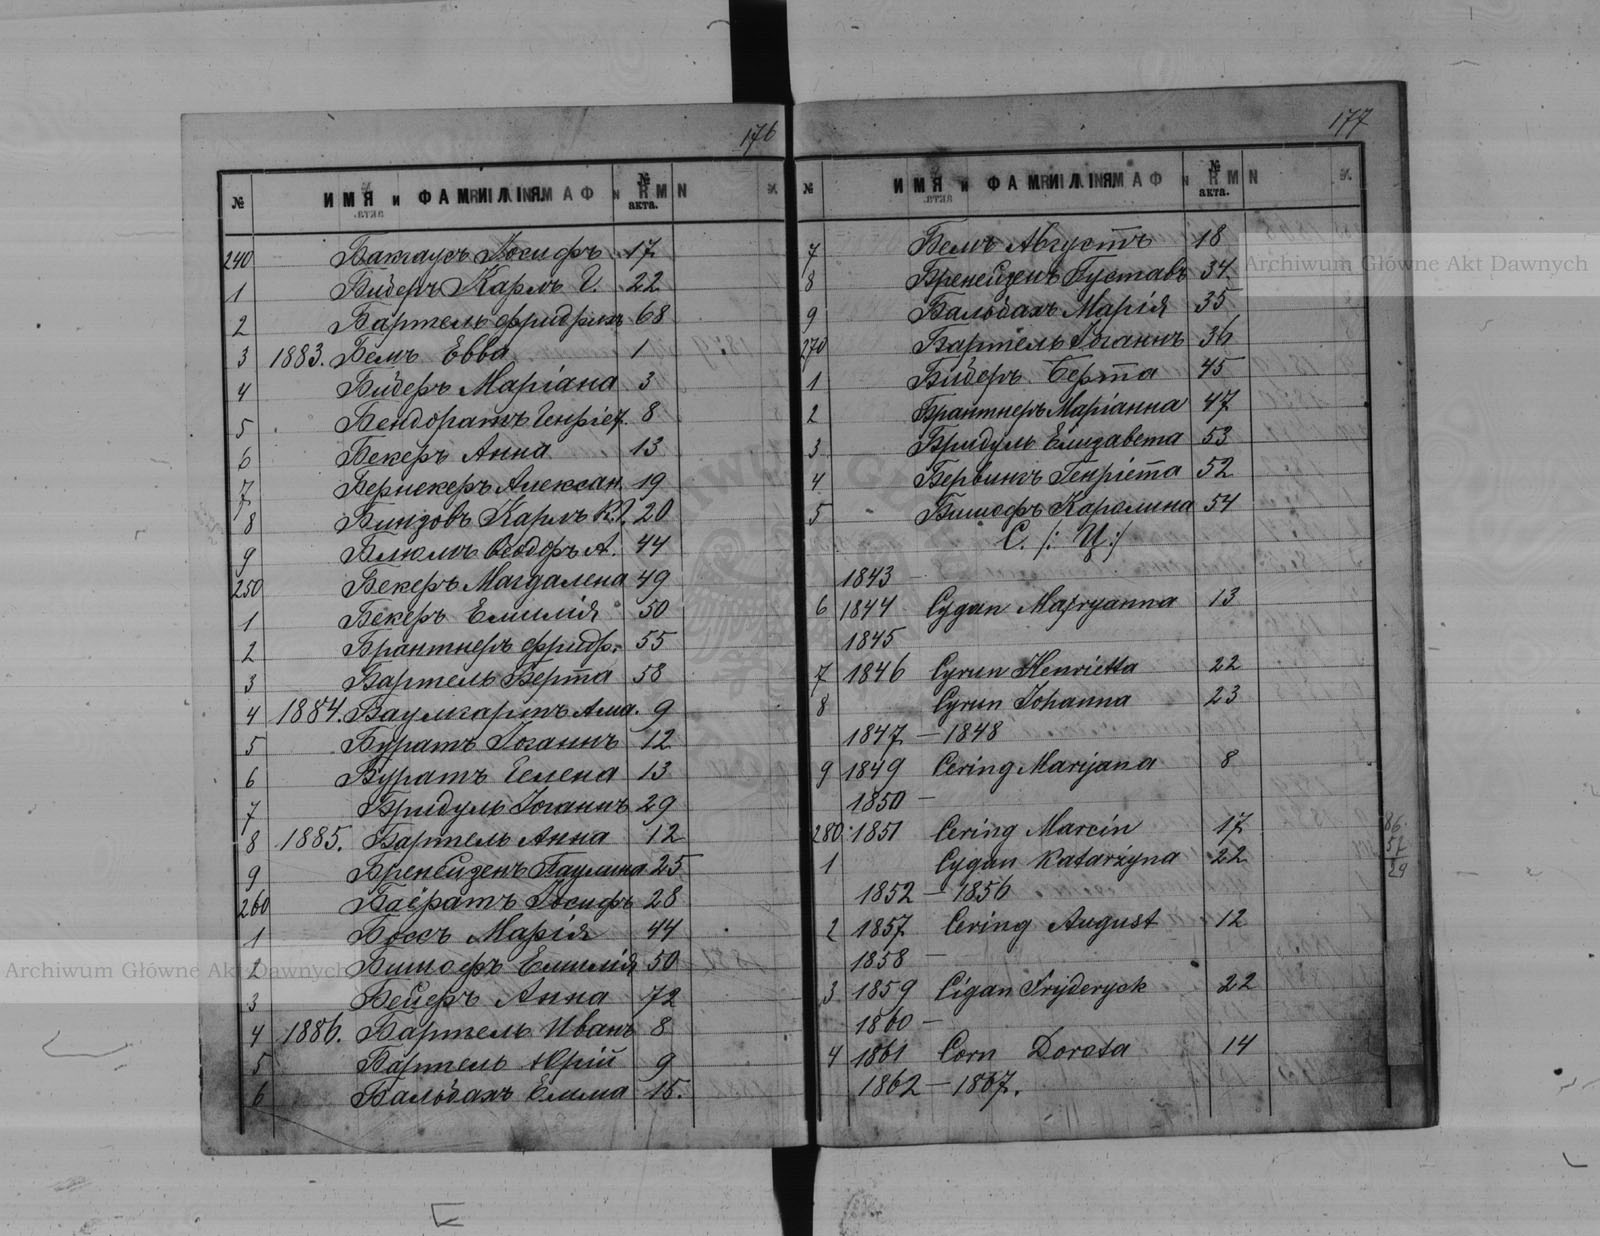 176
№ ИМЯ и ФАМИЛІЯ № акта.
240 Бакгаусъ Іосифъ 17
1 Бидеръ Карлъ Г. 22
2 Бартель Фридрихъ 68
3 1883. Бемъ Евва 1
4 Бидеръ Маріана 3
5 Бендоратъ Генріет. 8
6 Бекеръ Анна 13
7 Бернекеръ Александ. 19
8 Бинзовъ Карлъ 20
9 Блюмъ Ѳеодоръ А. 44
250 Бекеръ Магдалена 49
1 Бекеръ Емилія 50
2 Брантнеръ Фридр. 55
3 Бартель Берта 58
4 1884. Баумгартъ Ама. 9
5 Буратъ Іоганнъ 12
6 Буратъ Гелена 13
7 Бридуль Іоганнъ 29
8 1885. Бартель Анна 12
9 Бренейзенъ Паулина 25
260 Баератъ Іосифъ 28
1 Боссъ Марія 44
2 Бишофъ Емилія 50
3 Бейеръ Анна 72
4 1886. Бартель Иванъ 8
5 Бартель Юрій 9
6 Вальбахъ Емма 15.
177
№ ИМЯ и ФАМИЛІЯ № акта.
7 Бемъ Августъ 18
8 Бренейзенъ Густавъ 34
9 Бальбахъ Марія 35
270 Бартель Іоганнъ 36
1 Бидеръ Берта 45
2 Брантнеръ Маріанна 47
3 Бридуль Елизавета 53
4 Бервингъ Генріета 52
5 Бишофъ Каролина 54
С. /: Ц :/
1843 —
6 1844 Cygan Maryanna 13
1845
7 1846 Cyrun Henrietta 22
8 Cyrun Johanna 23
1847 — 1848
9 1849 Cering Maryana 8
1850 —
280. 1851 Cering Marcin 17
1 Cygan Katarzyna 22
1852 — 1856
2 1857 Cering August 12
1858 —
3 1859 Cigan Fryderyck 22
1860 —
4 1861 Corn Dorota 14
1862 — 1867.
86.
57
29
Archiwum Główne Akt Dawnych
Archiwum Główne Akt Dawnych